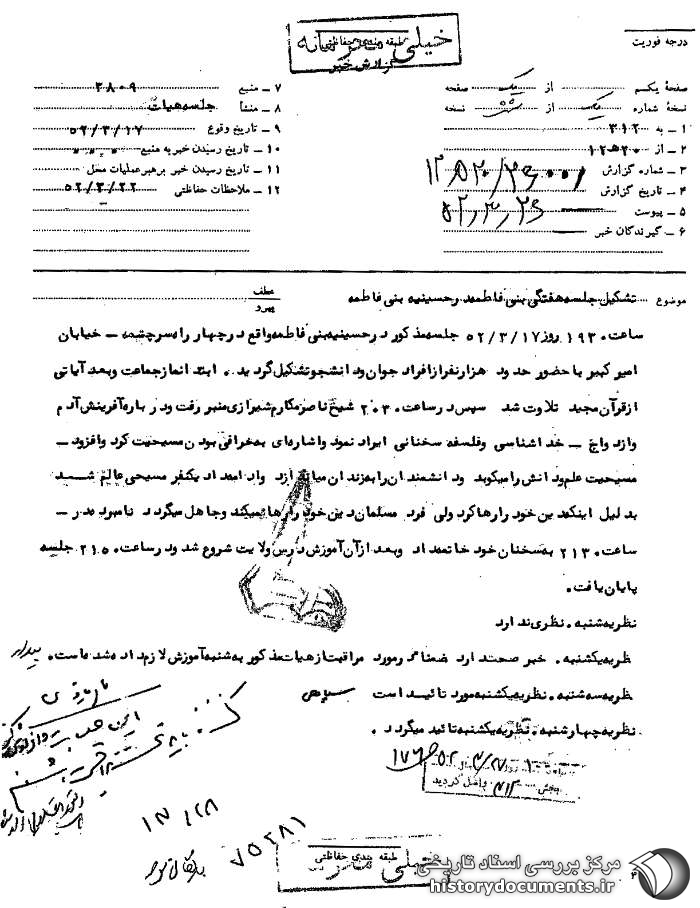 خیلی محرمانه
طبقه بندی حفاظتی
گزارش خبر
درجه فوریت
صفحه یکم از یک صفحه
نسخه شماره یک از شش نسخه
۱ ـ به ۳۱۲
۲ ـ از ۲۰ هـ ۱۲
۳ ـ شماره گزارش
۴ ـ تاریخ گزارش ۵۲/۳/۲۶
۵ ـ پیوست
۶ ـ گیرندگان خبر
۷ ـ منبع ۳۸۰۹
۸ ـ منشأ جلسه هیات
۹ ـ تاریخ وقوع ۵۲/۳/۱۷
۱۰ ـ تاریخ رسیدن خبر به منبع
۱۱ ـ تاریخ رسیدن خبر برهبر عملیات محل
۱۲ ـ ملاحظات حفاظتی ۵۲/۳/۲۲
موضوع تشکیل جلسه هفتگی بنی فاطمه در حسینیه بنی فاطمه
عطف
پیرو
ساعت ۱۹۳۰ روز ۵۲/۳/۱۷ جلسه مذکور در حسینیه بنی فاطمه واقع در چهار راه سرچشمه ـ خیابان
امیر کبیر با حضور حدود هزار نفر از افراد جوان و دانشجو تشکیل گردید. ابتدا نماز جماعت و بعد آیاتی
از قرآن مجید تلاوت شد سپس در ساعت ۲۰۳۰ شیخ ناصر مکارم شیرازی منبر رفت و در باره آفرینش آدم
و ازدواج ـ خداشناسی و فلسفه سخنانی ایراد نمود و اشاره‌ای به خرافی بودن مسیحیت کرد و افزود ـ
مسیحیت علم و دانش را میکوبد و دانشمندان را به زندان میاندازد و ادامه داد یکنفر مسیحی عالم شد
بدلیل اینکه دین خود را رها کرد ولی فرد مسلمان دین خود را رها نمیکند و جاهل میگردد نامبرده در ـ
ساعت ۲۱۳۰ به سخنان خود خاتمه داد و بعد از آن آموزش درس ولایت شروع شد و در ساعت ۲۱۵۰ جلسه
پایان یافت.
نظریه شنبه. نظری ندارد
نظریه یکشنبه. خبر صحت دارد ضمناً در مورد مراقبت از هیات مذکور به شنبه آموزش لازم داده شده است. بیدار
نظریه سه شنبه. نظریه یکشنبه مورد تائید است
نظریه چهارشنبه. نظریه یکشنبه تائید میگردد.
بخش ۳۱۲ واصل گردید
۷۵۲۸۱
طبقه بندی حفاظتی
مرکز بررسی اسناد تاریخی
historydocuments.ir